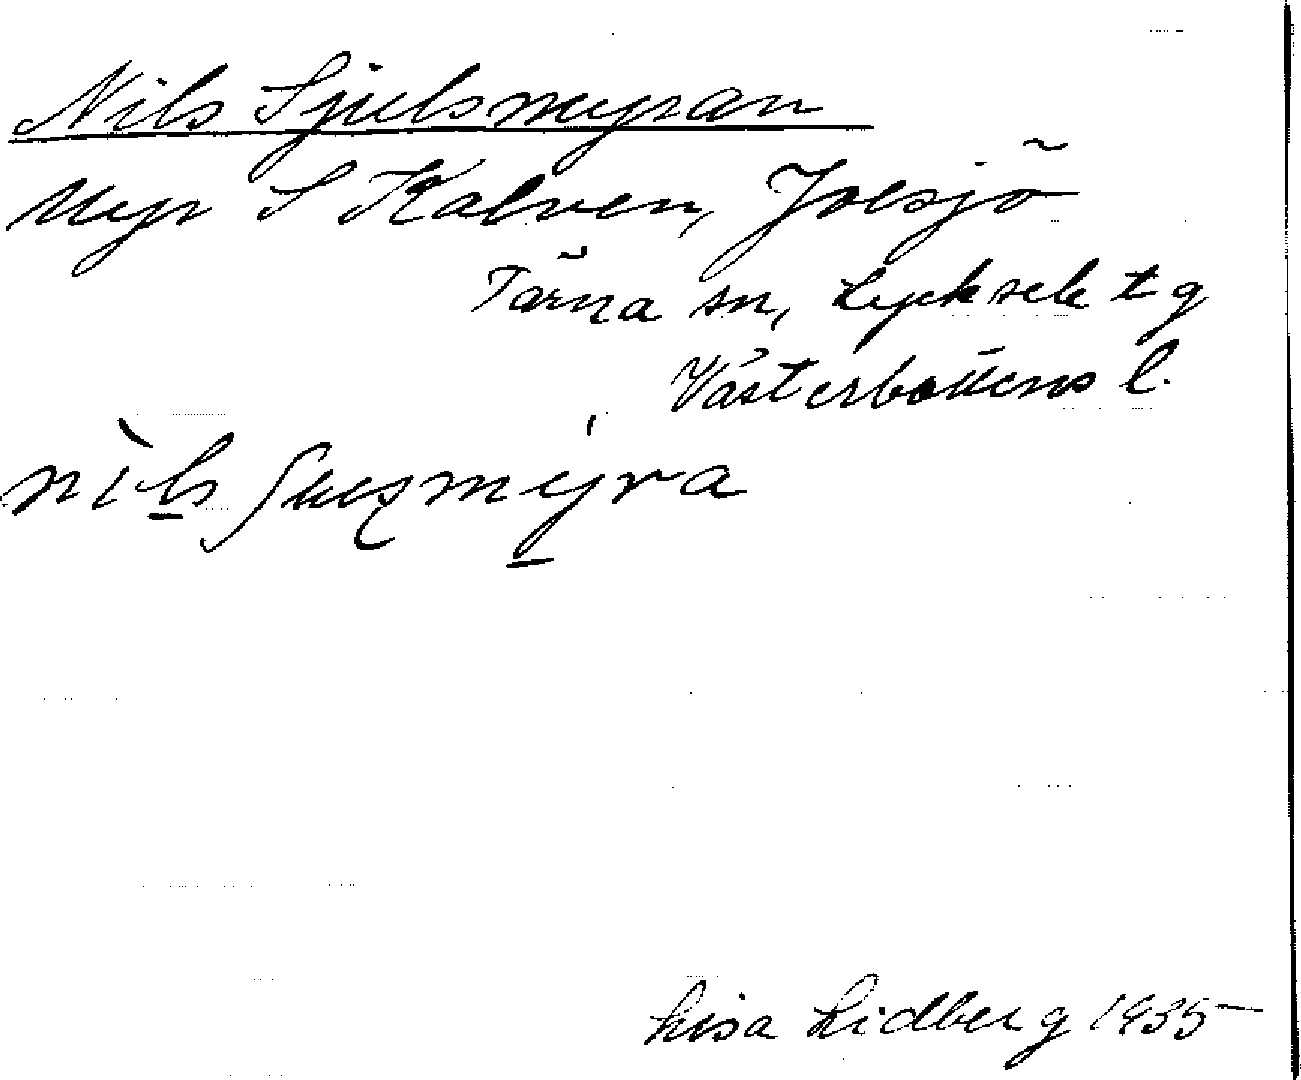 Nils Sjulsmyran
Myr S Kalven, Joesjö
Tärna sn, Lycksele tg
Västerbottens l.
Lisa Lidberg 1935